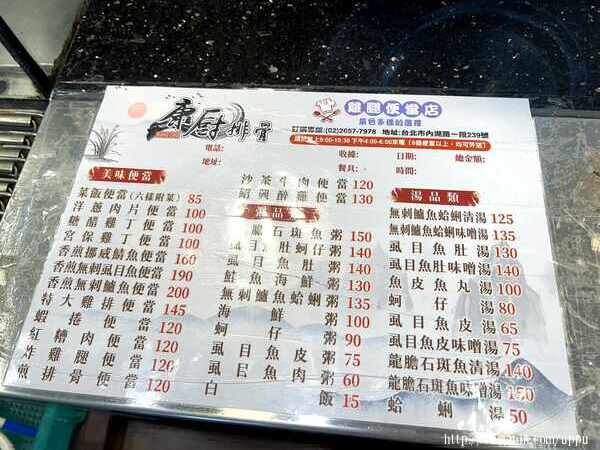 康厨排骨
雞腿便當店
菜色多樣的選擇
訂購專線:(02)2657-7978 地址:台北市內湖路一段239號
電話:
收據: 日期: 總金額:
地址:
餐具: 時間:
美味便當
菜飯便當(六樣附菜) 85
洋蔥肉片便當 100
糖醋雞丁便當 100
宮保雞丁便當 100
香煎挪威鯖魚便當 160
香煎無刺虱目魚便當 190
香煎無刺鱸魚便當 200
特大雞排便當 145
蝦捲便當 120
紅糟肉便當 120
炸雞腿便當 120
煎排骨便當 120
沙茶牛肉便當 120
紹興醉雞便當 130
粥品
龍膽石斑魚粥 150
虱目魚肚蚵仔粥 140
虱目魚肚粥 140
鮭魚海鮮粥 130
無刺鱸魚蛤蜊粥 135
海鮮粥 100
蚵仔粥 90
虱目魚皮粥 75
虱目魚肉粥 60
白飯 15
湯品類
無刺鱸魚蛤蜊清湯 125
無刺鱸魚蛤蜊味噌湯 135
虱目魚肚湯 130
虱目魚肚味噌湯 140
魚皮魚丸湯 100
蚵仔湯 80
虱目魚皮湯 65
虱目魚皮味噌湯 75
龍膽石斑魚清湯 140
龍膽石斑魚味噌湯 150
蛤蜊湯 50